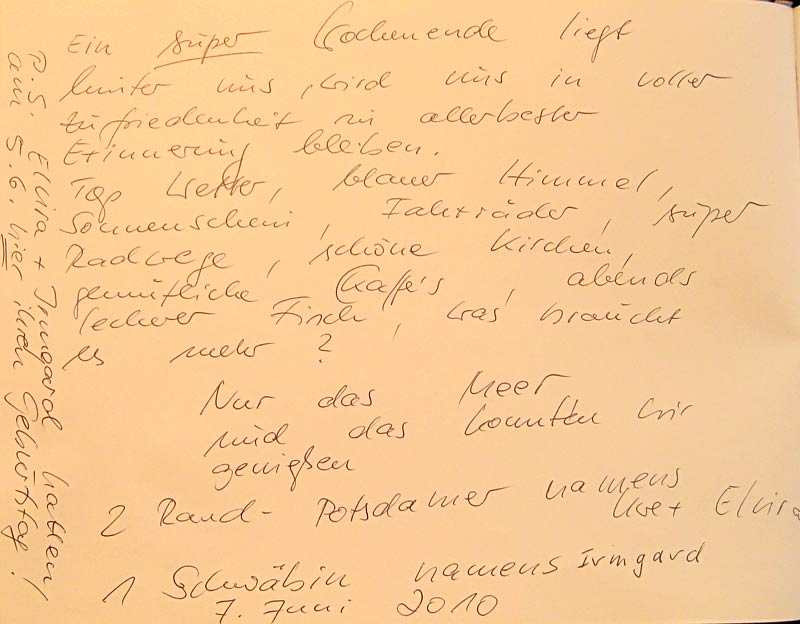 Ein super Wochenende liegt
hinter uns, wird uns in voller
Zufriedenheit in allerbester
Erinnerung bleiben.
Top Wetter, blauer Himmel,
Sonnenschein, Fahrräder, super
Radwege, schöne Kirchen,
gemütliche Kaffe's, abends
leckerer Fisch, was braucht
es mehr?
Nur das Meer
und das konnten wir
genießen
2 Rand-Potsdamer namens
Uwe + Elvira
1 Schwäbin namens Irmgard
7. Juni 2010
P.S. Elvira + Irmgard hatten,
am 5.6. hier ihren Geburtstag!